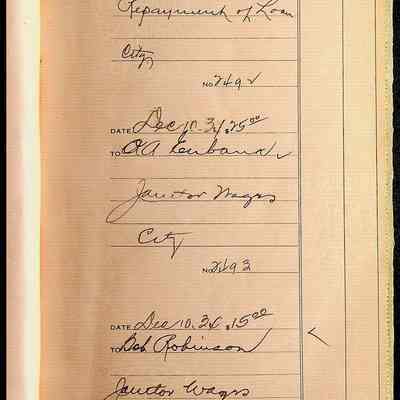 Repayment of Loan
City
No 2492
DATE Dec 10-34 $25 00
TO O A Eubank
Janitor Wages
City
No 2493
DATE Dec 10.34 $15 00
TO Bob Robinson
Janitor Wages